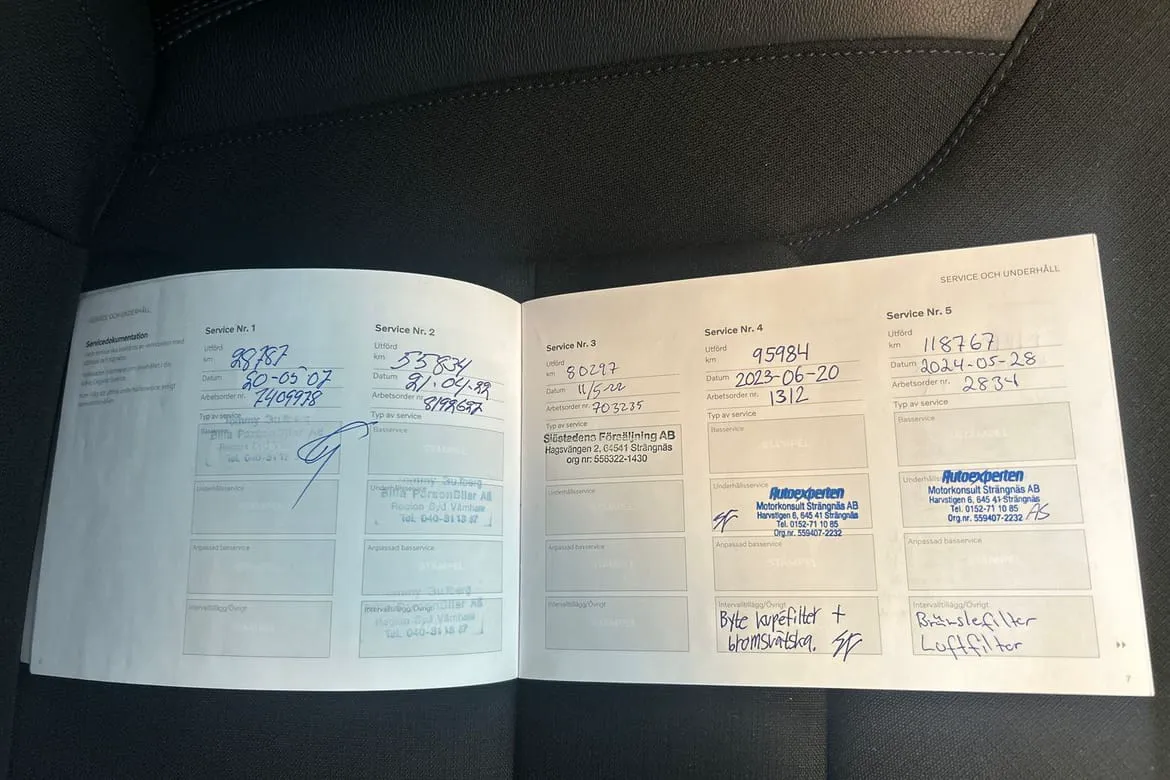 SERVICE OCH UNDERHÅLL
Servicedokumentation
Service Nr. 1
Utförd
km 28787
Datum 20-05-07
Arbetsorder nr. 7409978
Typ av service
Basservice
Underhållsservice
Anpassad basservice
Intervalltillägg/Övrigt
Service Nr. 2
Utförd
km 55834
Datum 21-04-22
Arbetsorder nr.
Typ av service
Basservice
STÄMPEL
Underhållsservice
Bilia PersonBilar AB
Region Syd Värnhem
Tel. 040-31 13 87
Anpassad basservice
STÄMPEL
Intervalltillägg/Övrigt
Region Syd Värnhem
Tel. 040-31 13 87
SERVICE OCH UNDERHÅLL
Service Nr. 3
Utförd
km 80297
Datum 11/5-22
Arbetsorder nr. 703235
Typ av service
Slåstadens Försäljning AB
Hagsvängen 2, 64541 Strängnäs
org nr: 556322-1430
Underhållsservice
Anpassad basservice
Intervalltillägg/Övrigt
Service Nr. 4
Utförd
km 95984
Datum 2023-06-20
Arbetsorder nr. 1312
Typ av service
Basservice
STÄMPEL
Underhållsservice
Autoexperten
Motorkonsult Strängnäs AB
Harvstigen 6, 645 41 Strängnäs
Tel. 0152-71 10 85
Org.nr. 559407-2232
Anpassad basservice
STÄMPEL
Intervalltillägg/Övrigt
Byte kupefilter +
bromsvätska.
Service Nr. 5
Utförd
km 118767
Datum 2024-05-28
Arbetsorder nr. 2834
Typ av service
Basservice
STÄMPEL
Underhållsservice
Autoexperten
Motorkonsult Strängnäs AB
Harvstigen 6, 645 41 Strängnäs
Tel. 0152-71 10 85
Org.nr. 559407-2232 AS
Anpassad basservice
STÄMPEL
Intervalltillägg/Övrigt
Bränslefilter
Luftfilter
7